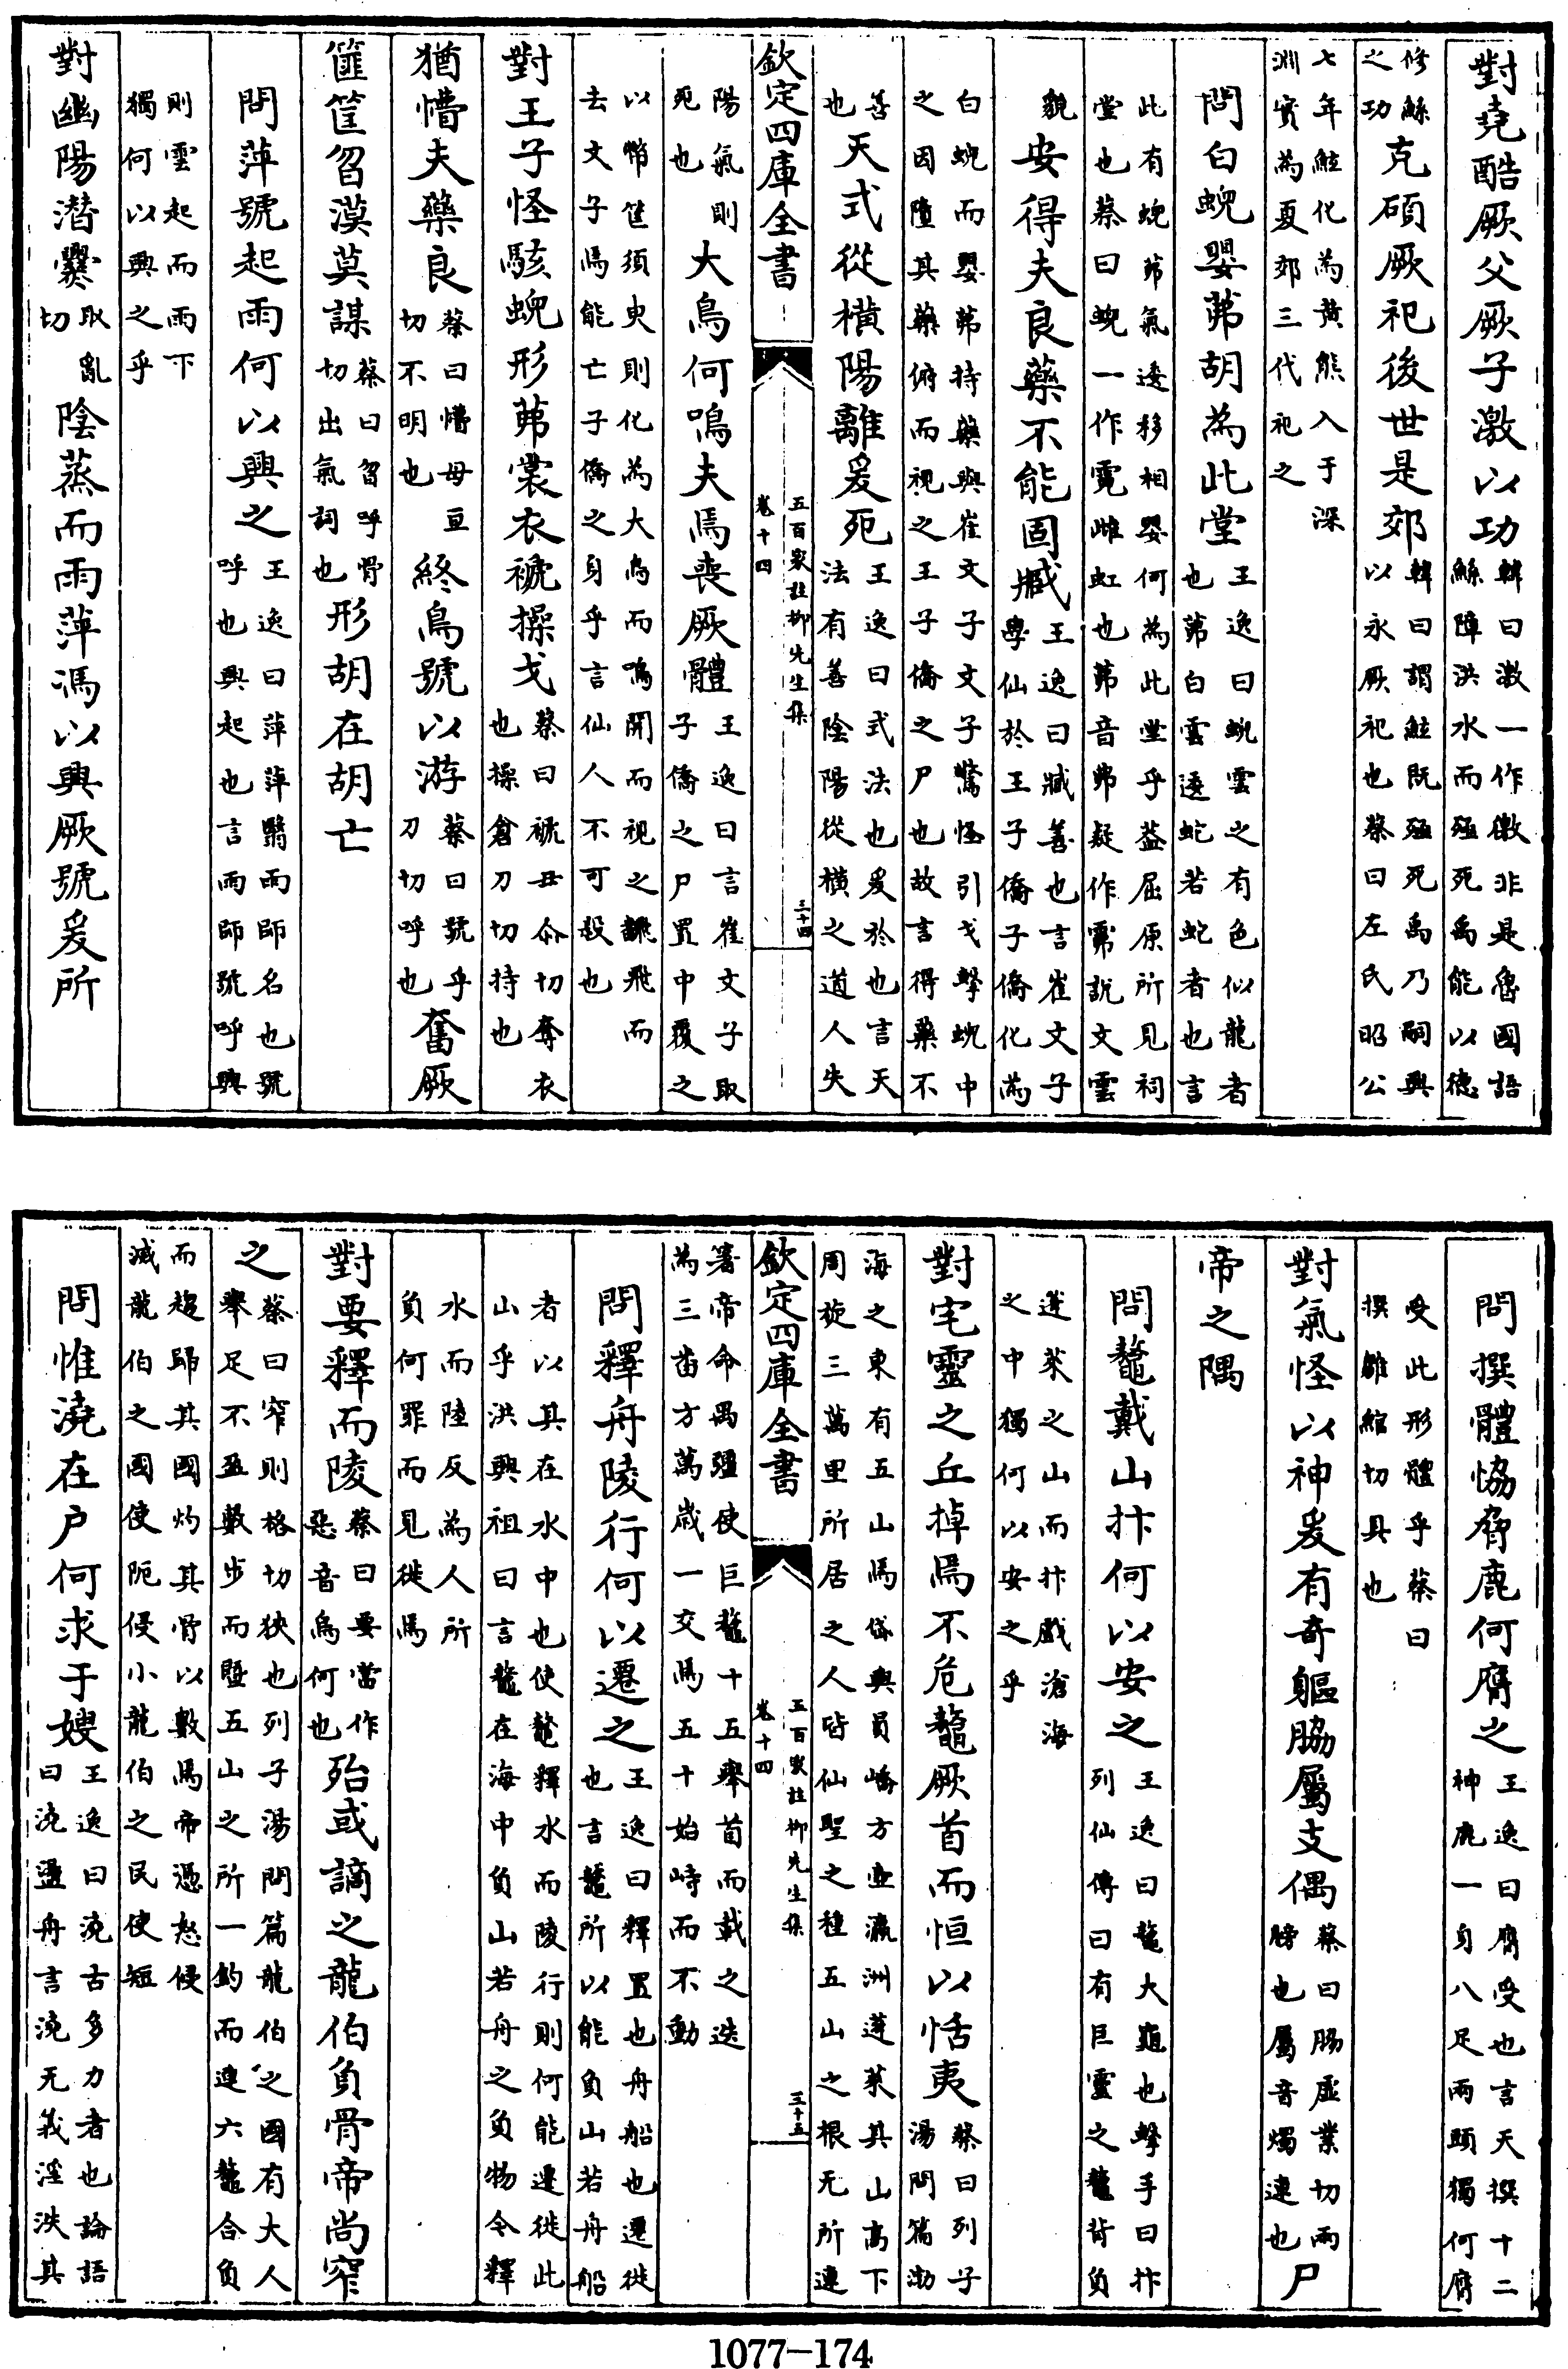 對堯酷厥父厥子激以功韓曰激一作徼非是魯國語鯀障洪水而殛死禹能以德
修鯀之功克碩厥祀後世是郊韓曰謂鯀既殛死禹乃嗣興以永厥祀也蔡曰左氏昭公
七年鯀化為黃熊入于深淵實為夏郊三代祀之
問白蜺嬰茀胡為此堂王逸曰蜺雲之有色似龍者也茀白雲逶蛇若蛇者也言
此有蜺茀氣逶移相嬰何為此堂乎蓋屈原所見祠堂也蔡曰蜺一作霓雌虹也茀音弗疑作霱說文雲
貌安得夫良藥不能固臧王逸曰臧善也言崔文子學仙於王子僑子僑化為
白蜺而嬰茀持藥與崔文子文子驚怪引戈擊蜺中之因墮其藥俯而視之王子僑之尸也故言得藥不
善也天式從橫陽離爰死王逸曰式法也爰於也言天法有善陰陽從橫之道人失
欽定四庫全書
五百家註柳先生集
卷十四
三十四
陽氣則死也大鳥何鳴夫焉喪厥體王逸曰言崔文子取子僑之尸置中覆之
以幣筐須臾則化為大鳥而鳴開而視之飜飛而去文子焉能亡子僑之身乎言仙人不可殺也
對王子怪駭蜺形茀裳衣褫操戈蔡曰褫丑尒切奪衣也操倉刀切持也
猶懵夫藥良蔡曰懵母亘切不明也終鳥號以游蔡曰號乎刀切呼也奮厥
篚筐曶漠莫謀蔡曰曶呼骨切出氣詞也形胡在胡亡
問萍號起雨何以興之王逸曰萍萍翳雨師名也號呼也興起也言雨師號呼興
則雲起而雨下獨何以興之乎
對幽陽潜爨取亂切陰蒸而雨萍馮以興厥號爰所
問撰體恊脅鹿何膺之王逸曰膺受也言天撰十二神鹿一身八足兩頭獨何膺
受此形體乎蔡曰撰雛綰切具也
對氣怪以神爰有奇軀脇屬支偶蔡曰脇虛業切兩膀也屬音燭連也尸
帝之隅
問鼇戴山抃何以安之王逸曰鼇大龜也擊手曰抃列仙傳曰有巨靈之鼇背負
蓬萊之山而抃戲滄海之中獨何以安之乎
對宅靈之丘掉焉不危鼇厥首而恒以恬夷蔡曰列子湯問篇渤
海之東有五山焉岱輿員嶠方壺瀛洲蓬萊其山高下周旋三萬里所居之人皆仙聖之種五山之根无所連
欽定四庫全書
五百家註柳先生集
卷十四
三十五
箸帝命禺彊使巨鼇十五舉首而戴之迭為三畨六萬歲一交焉五十始峙而不動
問釋舟陵行何以遷之王逸曰釋置也舟船也遷徙也言鼇所以能負山若舟船
者以其在水中也使鼇釋水而陵行則何能遷徙此山乎洪興祖曰言鼇在海中負山若舟之負物今釋
水而陸反為人所負何罪而見徙焉
對要釋而陵蔡曰要當作惡音烏何也殆或謫之龍伯負骨帝尚窄
之蔡曰窄則格切狹也列子湯問篇龍伯之國有大人舉足不盈數步而暨五山之所一釣而連六鼇合負
而趨歸其國灼其骨以數焉帝憑怒侵減龍伯之國使阨侵小龍伯之民使短
問惟澆在户何求于嫂王逸曰澆古多力者也論語曰澆盪舟言澆无義淫泆其
1077-174